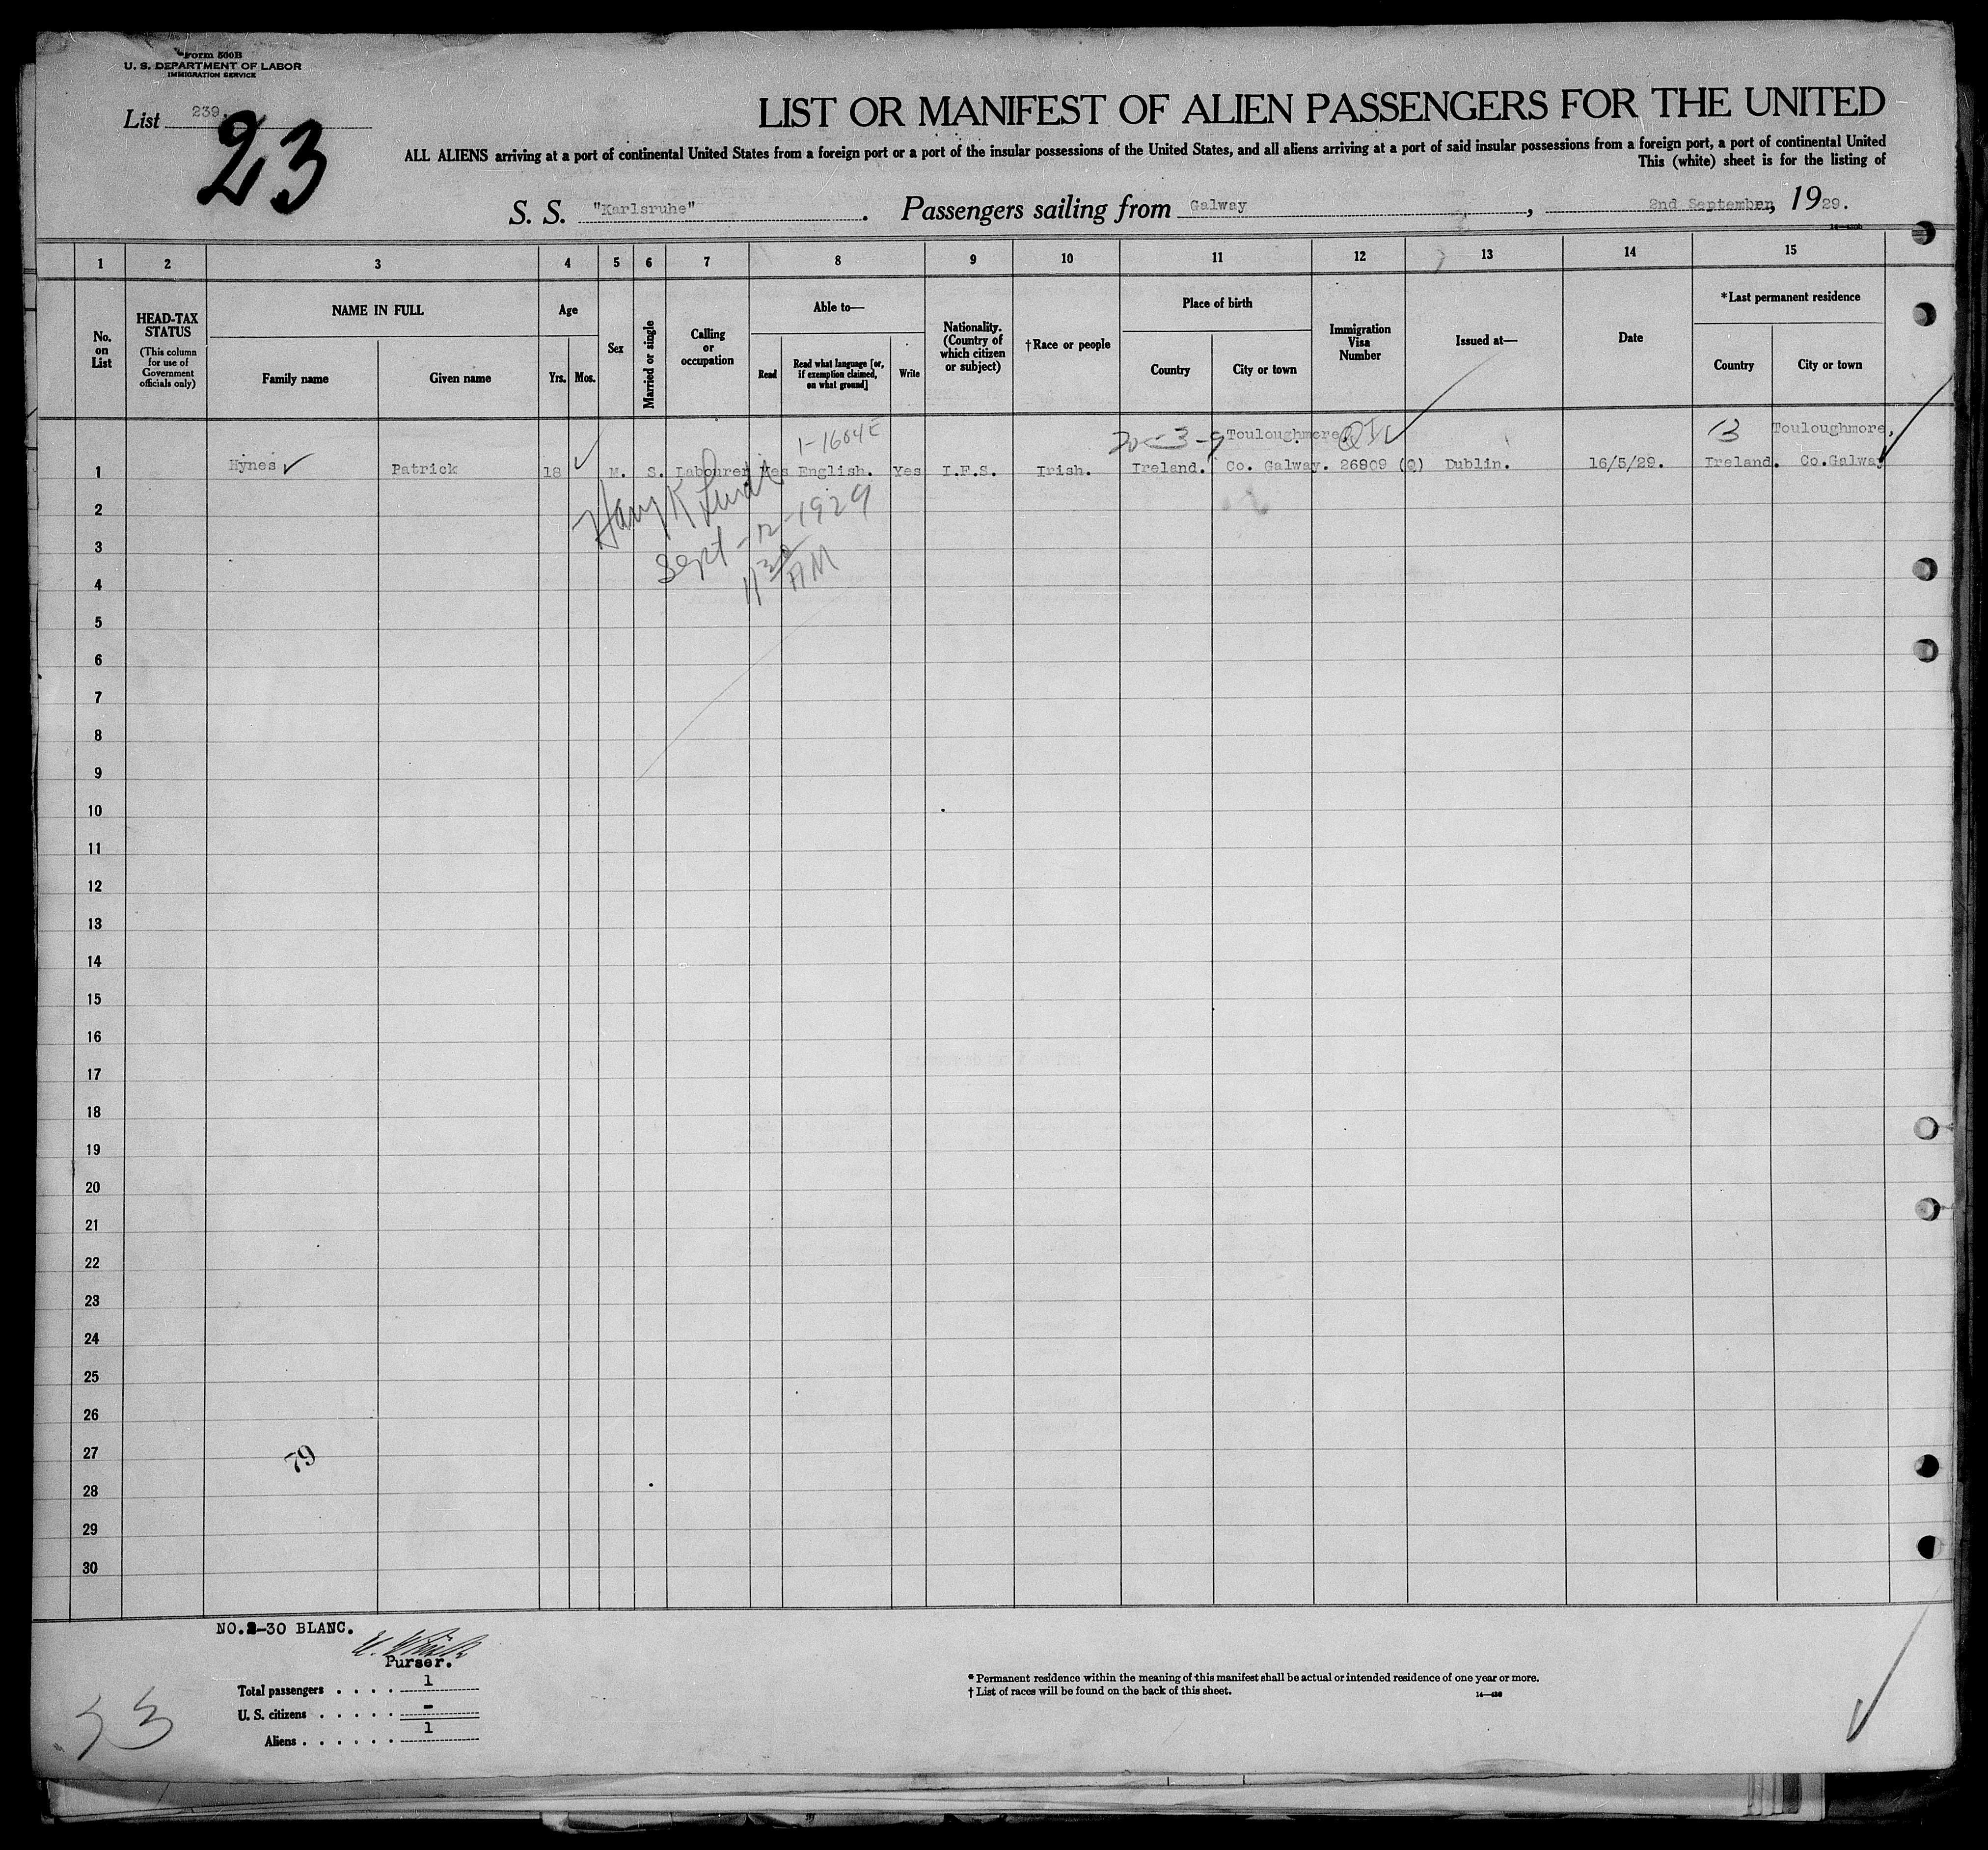 Form 500B
U. S. DEPARTMENT OF LABOR
IMMIGRATION SERVICE
List 239.
23
LIST OR MANIFEST OF ALIEN PASSENGERS FOR THE UNITED
ALL ALIENS arriving at a port of continental United States from a foreign port or a port of the insular possessions of the United States, and all aliens arriving at a port of said insular possessions from a foreign port, a port of continental United
This (white) sheet is for the listing of
S. S. "Karlsruhe" . Passengers sailing from Galway , 2nd September, 1929.
1 2 3 4 5 6 7 8 9 10 11 12 13 14 15
No. on List
HEAD-TAX STATUS
(This column for use of Government officials only)
NAME IN FULL
Family name
Given name
Age
Yrs. Mos.
Sex
Married or single
Calling or occupation
Able to—
Read
Read what language [or, if exemption claimed, on what ground]
Write
Nationality. (Country of which citizen or subject)
†Race or people
Place of birth
Country
City or town
Immigration Visa Number
Issued at—
Date
*Last permanent residence
Country
City or town
1-1604E
-3-9 Touloughmore QIV 13 Touloughmore,
1 Hynes Patrick 18 M. S. Labourer Yes English. Yes I.F.S. Irish. Ireland. Co. Galway. 26909 (Q) Dublin. 16/5/29. Ireland. Co.Galway
Harry K
Sept-12-1929
11 30 AM
2
3
4
5
6
7
8
9
10
11
12
13
14
15
16
17
18
19
20
21
22
23
24
25
26
27
28
29
30
79
NO.2-30 BLANC.
Purser.
Total passengers . . . . 1
U. S. citizens . . . . . -
Aliens . . . . . . 1
* Permanent residence within the meaning of this manifest shall be actual or intended residence of one year or more.
† List of races will be found on the back of this sheet.